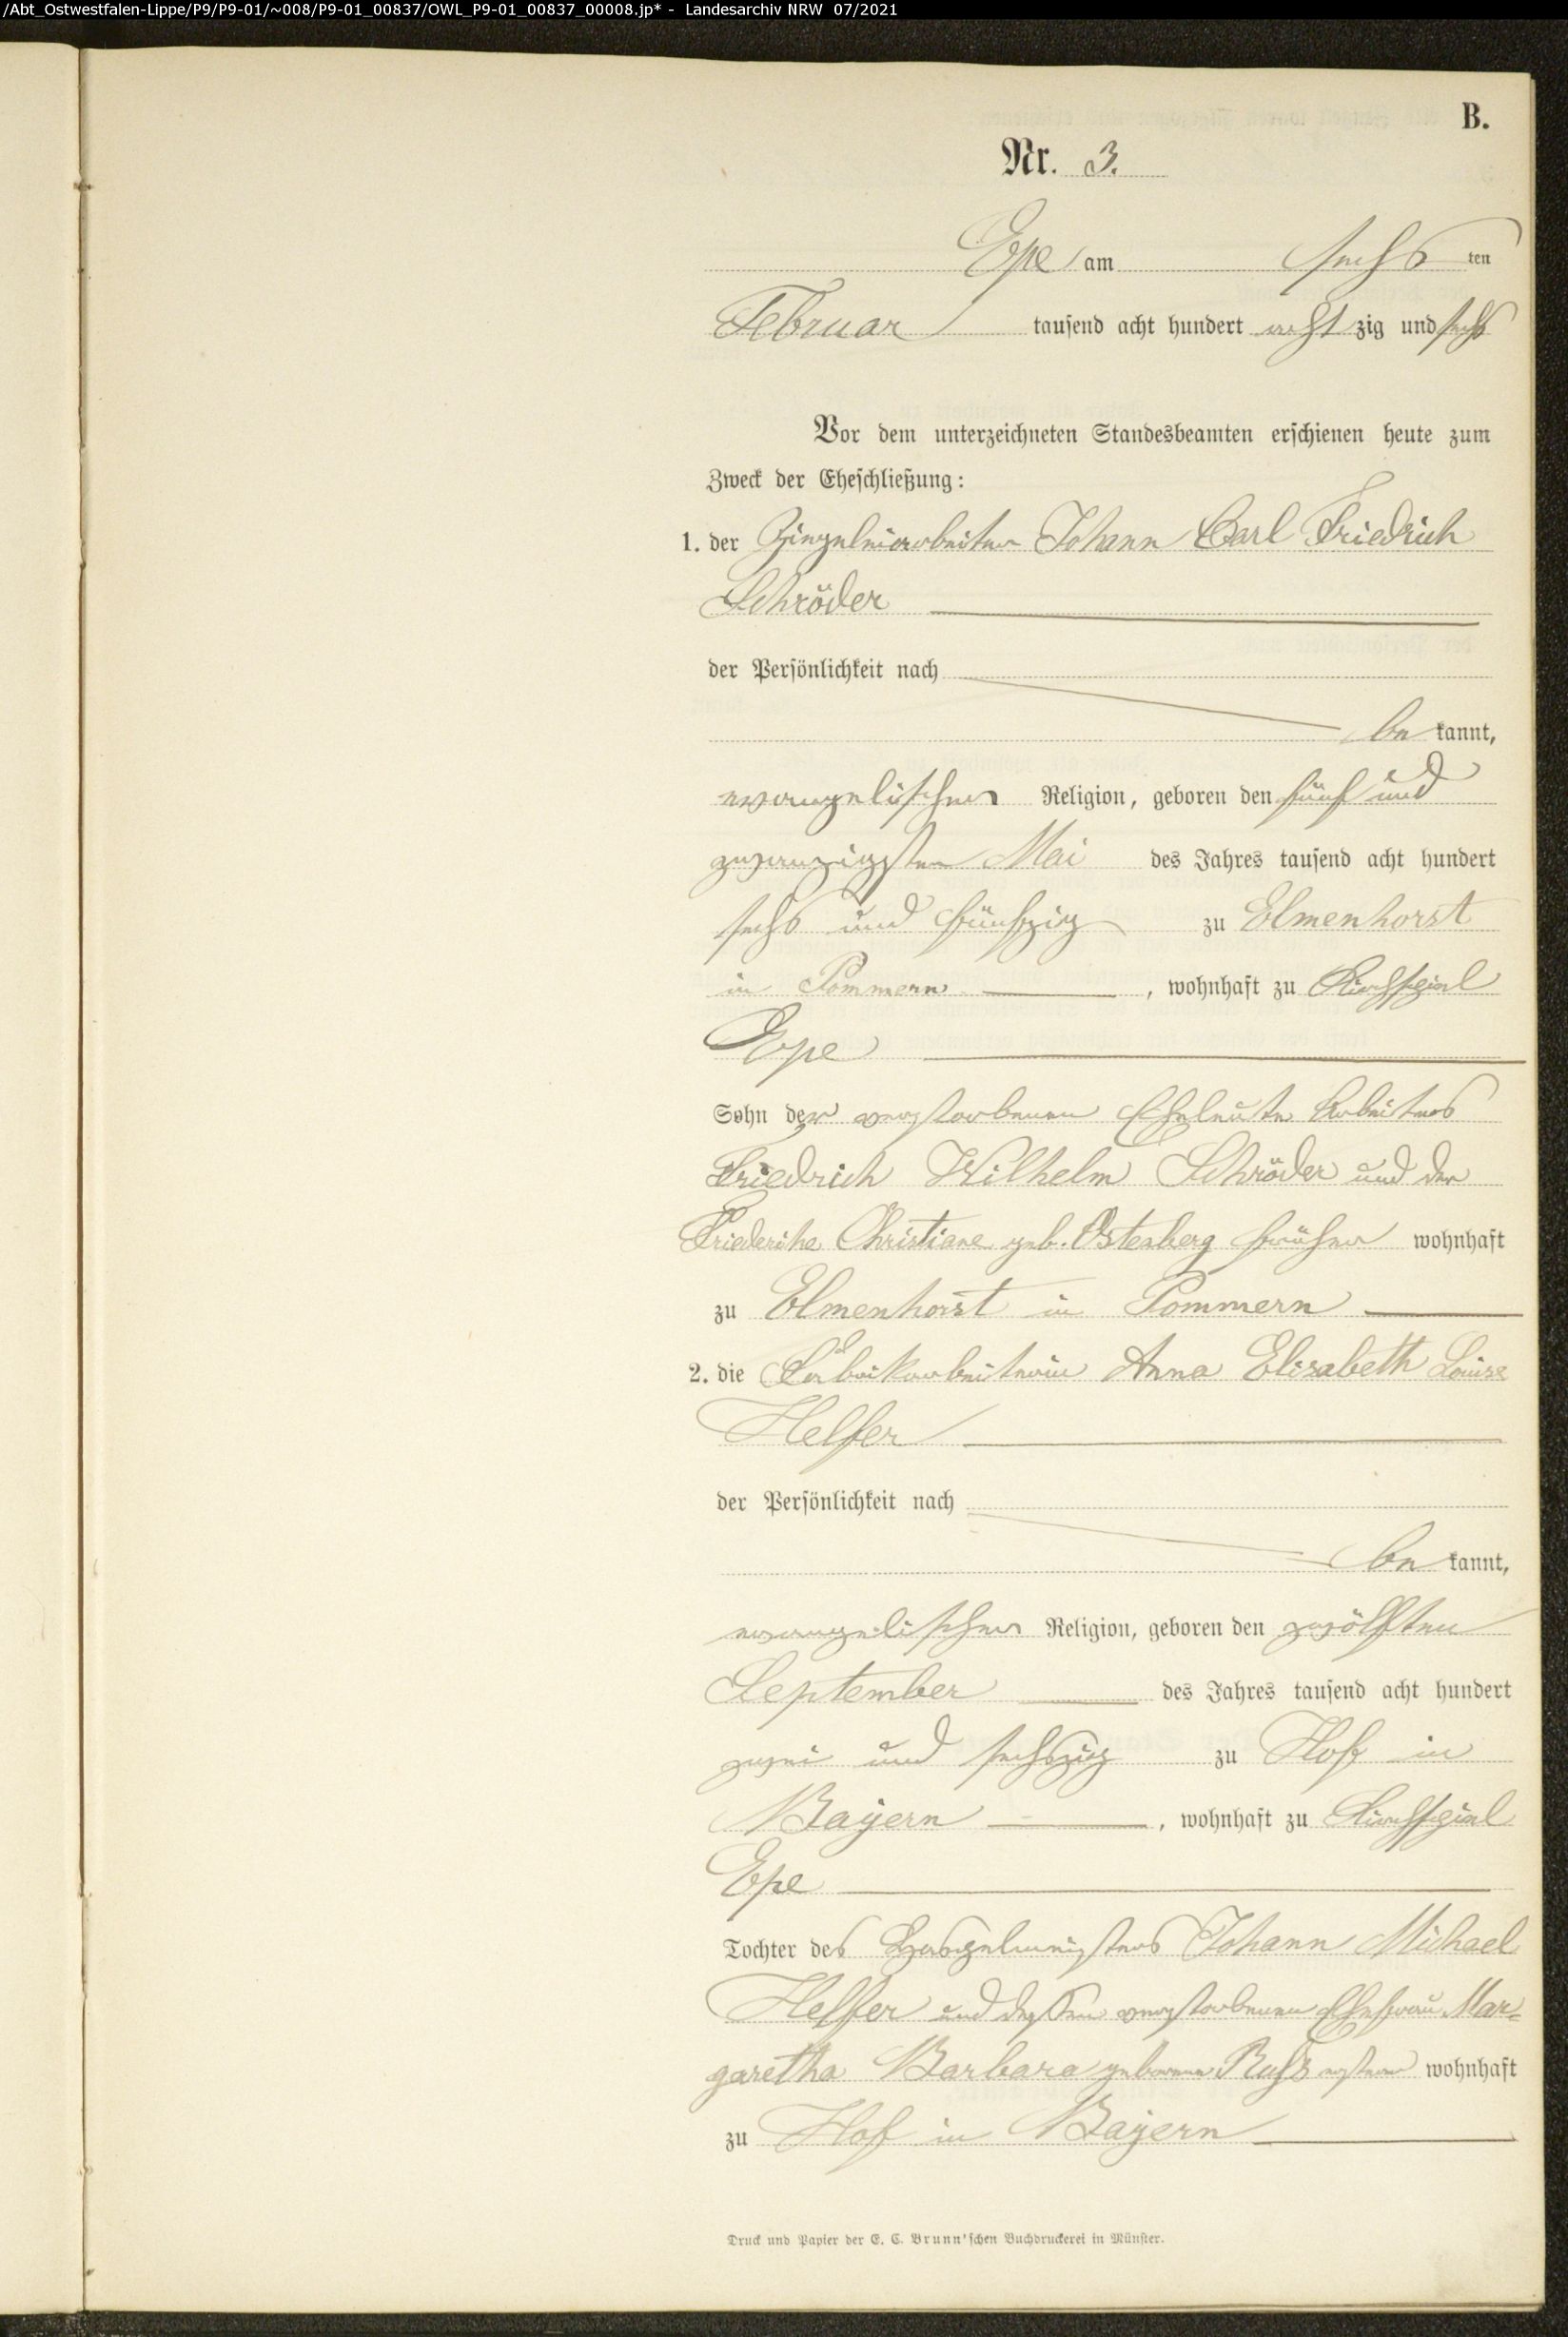 /Abt_Ostwestfalen-Lippe/P9/P9-01/~008/P9-01_00837/OWL_P9-01_00837_00008.jp* - Landesarchiv NRW 07/2021
B.
Nr. 3.
Epe am sechsten
Februar tausend acht hundert achtzig und sechs
Vor dem unterzeichneten Standesbeamten erschienen heute zum
Zweck der Eheschließung:
1. der Ziegeleiarbeiter Johann Carl Friedrich
Schröder
der Persönlichkeit nach
bekannt,
evangelischer Religion, geboren den fünf und
zwanzigsten Mai des Jahres tausend acht hundert
sechs und fünfzig zu Elmenhorst
in Pommern, wohnhaft zu Kirchspiel
Epe
Sohn der verstorbenen Eheleute Arbeiters
Friedrich Wilhelm Schröder und der
Friederike Christiane geb. Ostenberg früher wohnhaft
zu Elmenhorst in Pommern
2. die Fabrikarbeiterin Anna Elisabeth Louise
Helfer
der Persönlichkeit nach
bekannt,
evangelischer Religion, geboren den zwölften
September des Jahres tausend acht hundert
zwei und sechszig zu Hof in
Bayern, wohnhaft zu Kirchspiel
Epe
Tochter des Johann Michael
Helfer und dessen verstorbenen Ehefrau Mar-
garetha Barbara geborene Ruß ersterer wohnhaft
zu Hof in Bayern
Druck und Papier der E. C. Brunn'schen Buchdruckerei in Münster.